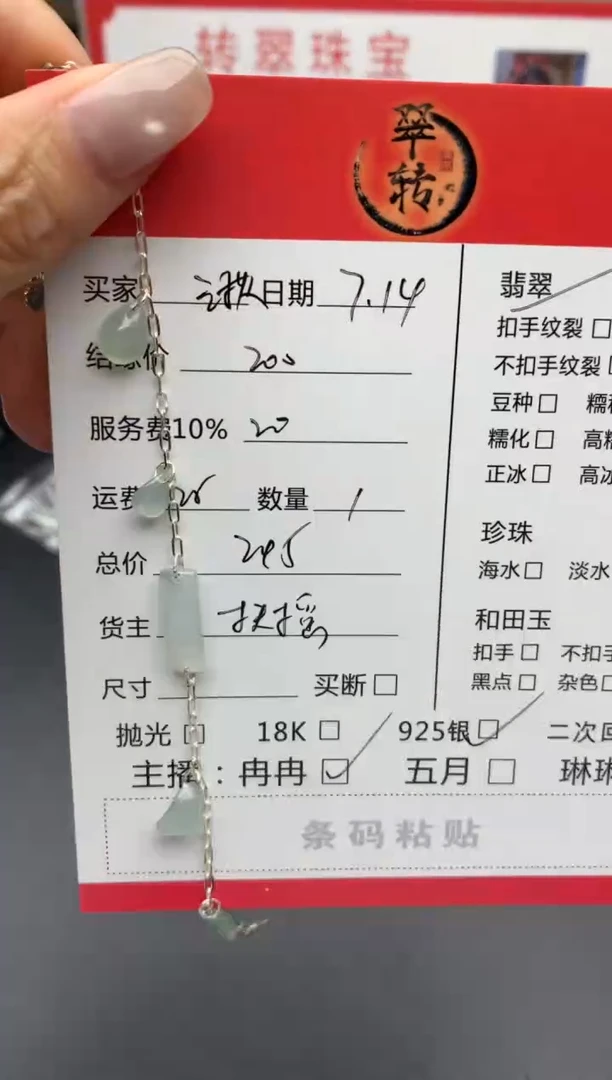 转翠珠宝
翠
转
买家 日期 7.14
结缘价 200
服务费10% 20
运费 数量 1
总价 245
货主 扶摇
尺寸 买断
抛光 18K 925银 二次回
主播：冉冉 五月 琳琳
条码粘贴
翡翠
扣手纹裂
不扣手纹裂
豆种 糯种
糯化 高糯
正冰 高冰
珍珠
海水 淡水
和田玉
扣手 不扣手
黑点 杂色